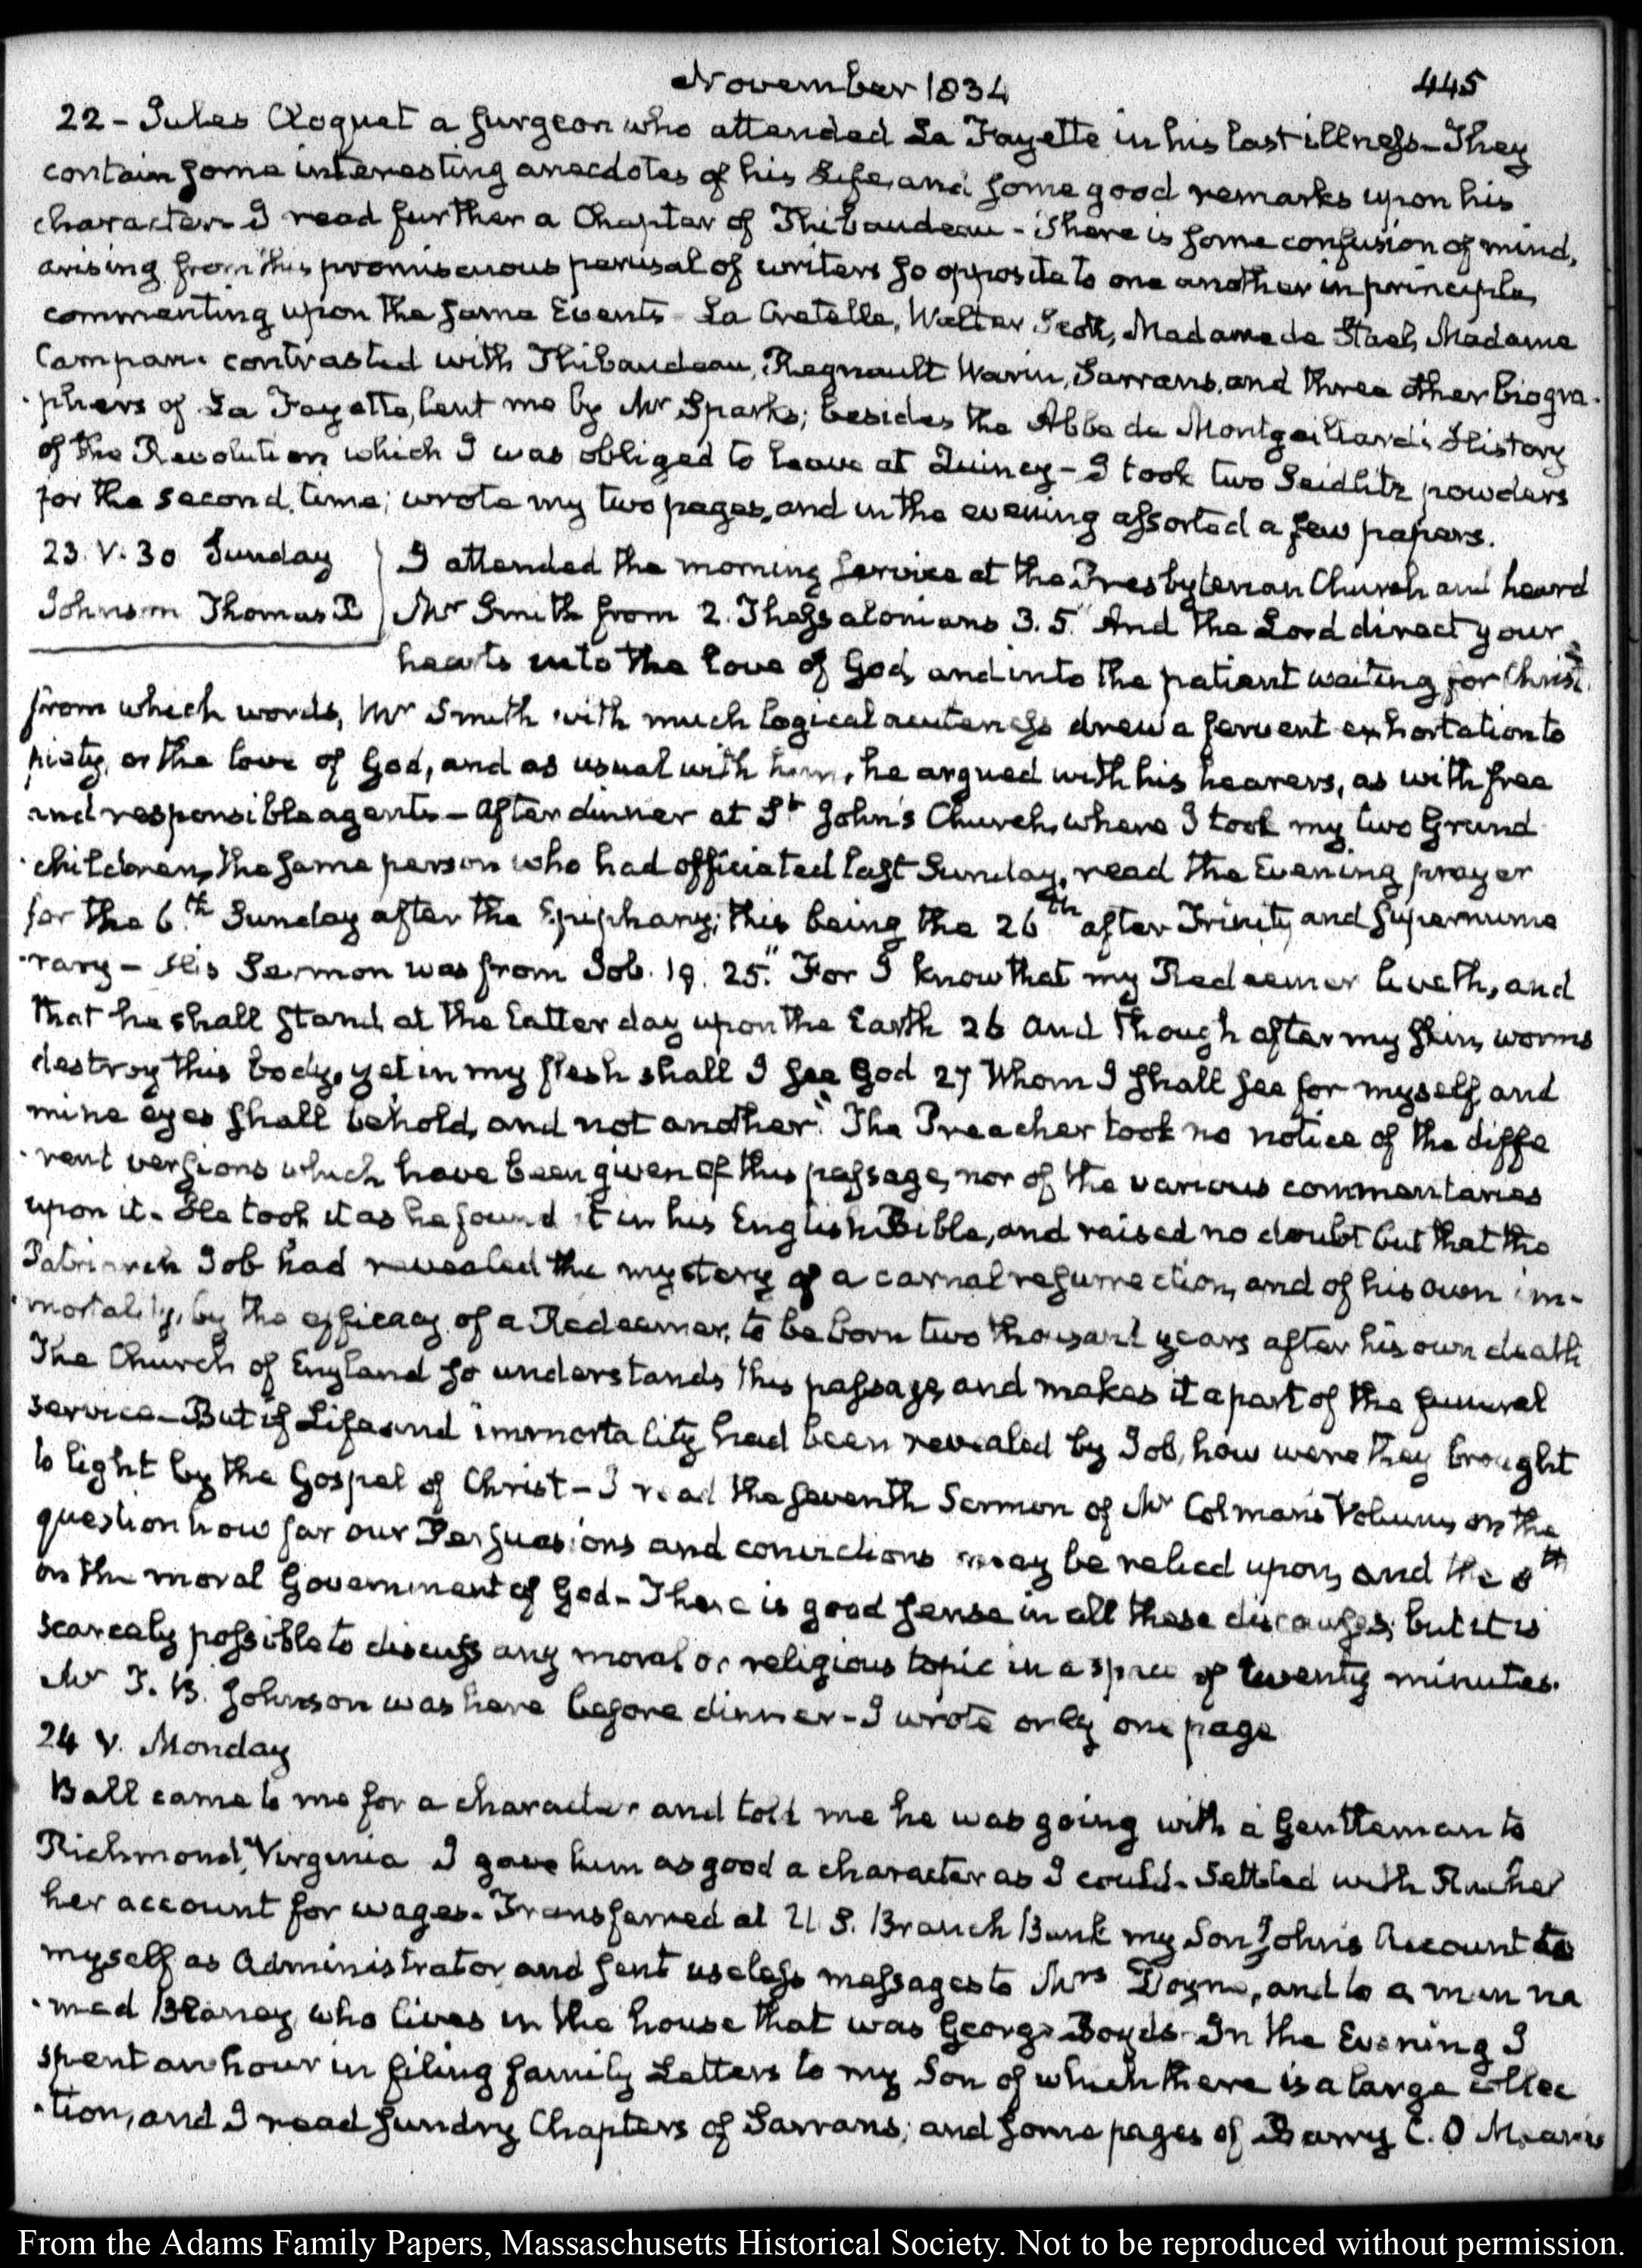 November 1834
445
22 - Jules Cloquet a surgeon who attended La Fayette in his last illness - They
contain some interesting anecdotes of his Life, and some good remarks upon his
character - I read further a Chapter of Thibaudeau - There is some confusion of mind,
arising from this promiscuous perusal of writers so opposite to one another in principle,
commenting upon the same Events - La Cretelle, Walter Scott, Madame de Stael, Madame
Campan - contrasted with Thibaudeau, Regnault Warin, Sarrans, and three other biogra-
-phers of La Fayette, lent me by Mr Sparks; besides the Abbe de Montgaillard's History
of the Revolution which I was obliged to leave at Quincy - I took two Seidlitz powders
for the second time; wrote my two pages, and in the evening assorted a few papers.
23. V. 30 Sunday
Johnson Thomas B
I attended the morning service at the Presbyterian Church and heard
Mr Smith from 2. Thessalonians 3. 5. "And the Lord direct your
hearts into the love of God, and into the patient waiting for Christ"
from which words, Mr Smith with much logical acuteness drew a fervent exhortation to
piety, or the love of God, and as usual with him, he argued with his hearers, as with free
and responsible agents - After dinner at St John's Church, where I took my two Grand
-children, the same person who had officiated last Sunday, read the Evening prayer
for the 6th Sunday after the Epiphany; this being the 26th after Trinity and supernume
-rary - His Sermon was from Job. 19. 25. "For I know that my Redeemer liveth, and
that he shall stand at the latter day upon the Earth 26 And though after my skin, worms
destroy this body, yet in my flesh shall I see God 27 Whom I shall see for myself, and
mine eyes shall behold, and not another" The Preacher took no notice of the diffe
-rent versions which have been given of this passage, nor of the various commentaries
upon it - He took it as he found it in his English Bible, and raised no doubt but that the
Patriarch Job had revealed the mystery of a carnal resurrection, and of his own im-
-mortality, by the efficacy of a Redeemer, to be born two thousand years after his own death
The Church of England so understands this passage, and makes it a part of the funeral
service - But if Life and immortality had been revealed by Job, how were they brought
to light by the Gospel of Christ - I read the seventh Sermon of Mr Colman's Volume, on the
question how far our Persuasions and convictions may be relied upon, and the 8th
on the moral Government of God - There is good sense in all these discourses; but it is
scarcely possible to discuss any moral or religious topic in a space of twenty minutes.
Mr T. B. Johnson was here before dinner - I wrote only one page
24 V. Monday
Ball came to me for a character and told me he was going with a Gentleman to
Richmond, Virginia I gave him as good a character as I could - Settled with Rachel
her account for wages - Transferred at U. S. Branch Bank my Son John's Account to
myself as Administrator, and sent useless messages to Mrs Doyne, and to a man na
-med Blaney who lives in the house that was George Boyd's - In the Evening I
spent an hour in filing family Letters to my Son of which there is a large collec
-tion, and I read sundry Chapters of Sarrans; and some pages of Barry E. O Meara's
From the Adams Family Papers, Massachusetts Historical Society. Not to be reproduced without permission.